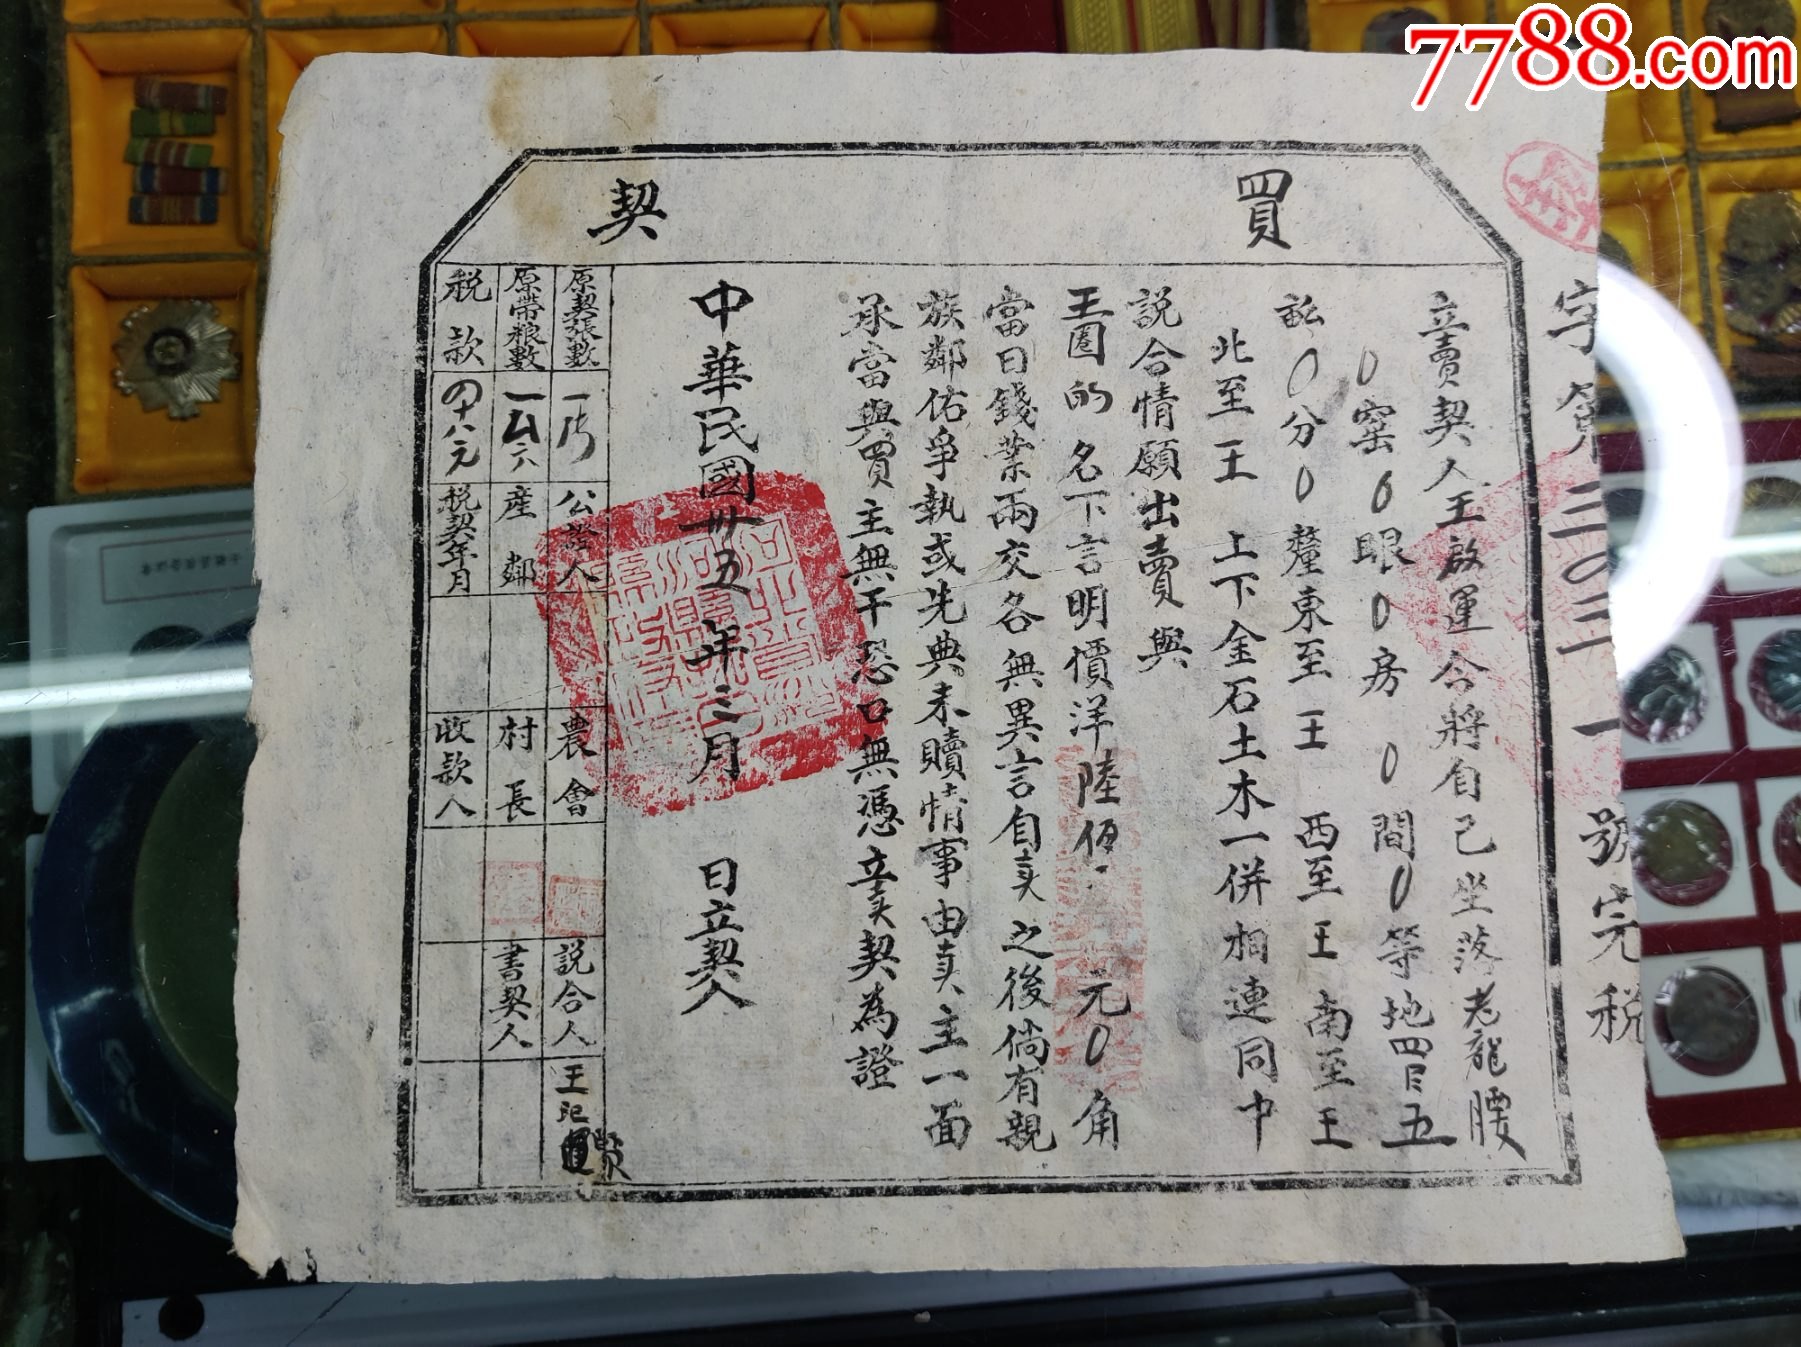 7788.com
買契
字第三〇三一號完税
立賣契人王啟運今將自己坐落老龍腰
0窰0眼00房0間0等地四段五
畝0分0釐東至王西至王南至王
北至王上下金石土木一併相連同中
説合情願出賣與
王圈的名下言明價洋陸佰元0角
當日錢業兩交各無異言自卖之後倘有親
族鄰佑爭執或先典未贖情事由卖主一面
承當與買主無干恐口無憑立卖契為證
中華民國卅五年三月日立契人
原契張數一張公證人農會説合人王記
原帶粮數產鄰村長書契人
税款四十八元税契年月收款人